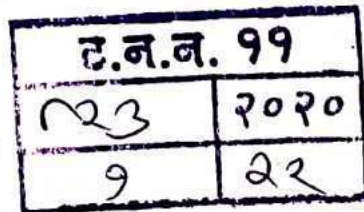 ट.न.न. ११
२०२०
१ २२